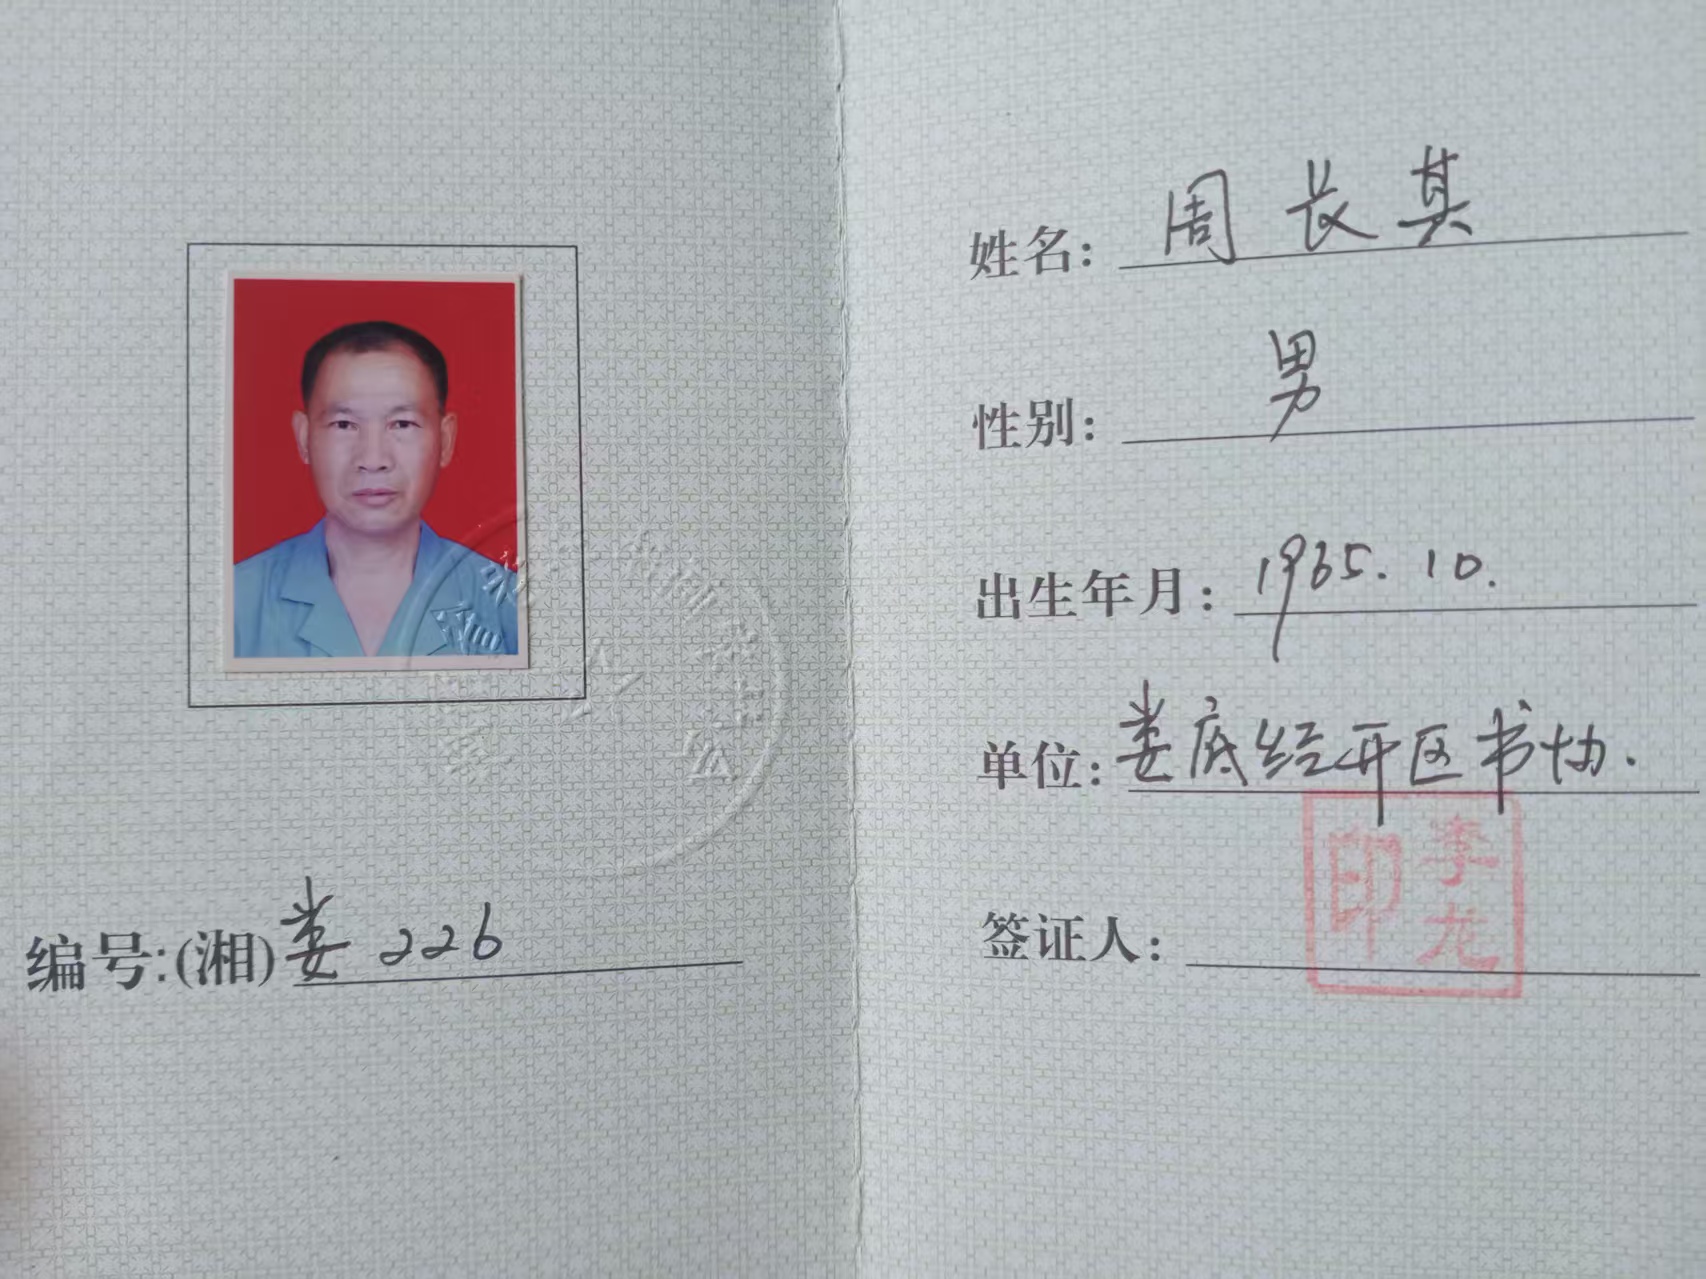 编号:(湘)娄226
姓名: 周长其
性别: 男
出生年月: 1965.10.
单位: 娄底经开区书协.
签证人:
李龙印